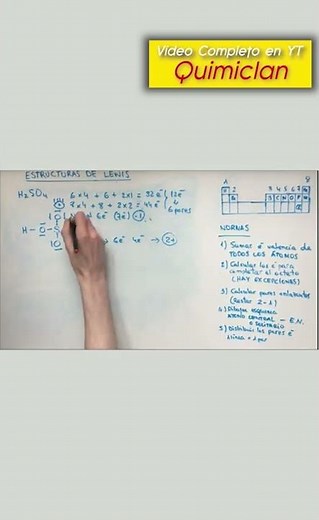 Vídeo Completo en YT
Quimiclan
ESTRUCTURAS DE LEWIS
H₂SO₄ 6x4 + 6 + 2x1 = 32e⁻ 12e⁻
8x4 + 8 + 2x2 = 44e⁻ 6 pares
H – O – S
6e⁻ 4e⁻ → 2+
NORMAS
1) Sumar e⁻ valencia de
TODOS LOS ÁTOMOS
2) Calcular los e⁻ para
completar el octeto
(HAY EXCEPCIONES)
3) Calcular pares enlazantes
(Restar 2 - 1)
4) Dibujar esqueleto
ÁTOMO CENTRAL – E.N.
o SOLITARIO
5) Distribuir los pares e⁻
1 línea = 1 par